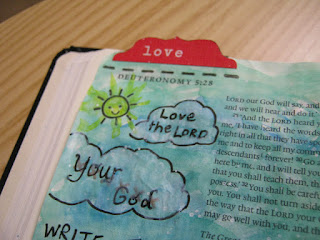 love
DEUTERONOMY 5:28
Love
the LORD
Your
God
WRITE
LORD our God will say, and
and we will hear and do it.'
And the LORD heard y
me, 'I have heard the words
right in all that they have spo
me and to keep all my comm
descendants forever!
here by me, and I will tell yo
that you shall teach them, th
You shall be careful
you. You shall not turn aside
the way that the LORD your G
may go well with you, and th